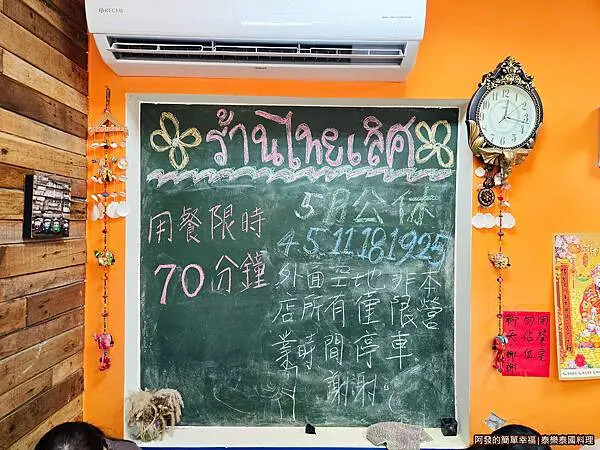 KECHI
ร้านไทยเลิศ
用餐限時
70分鐘
5月公休
4.5.11.18.19.25
外面空地非本
店所有僅限營
業時間停車
謝謝
用餐完
勿佔位
聊天謝謝
阿發的簡單幸福|泰樂泰國料理